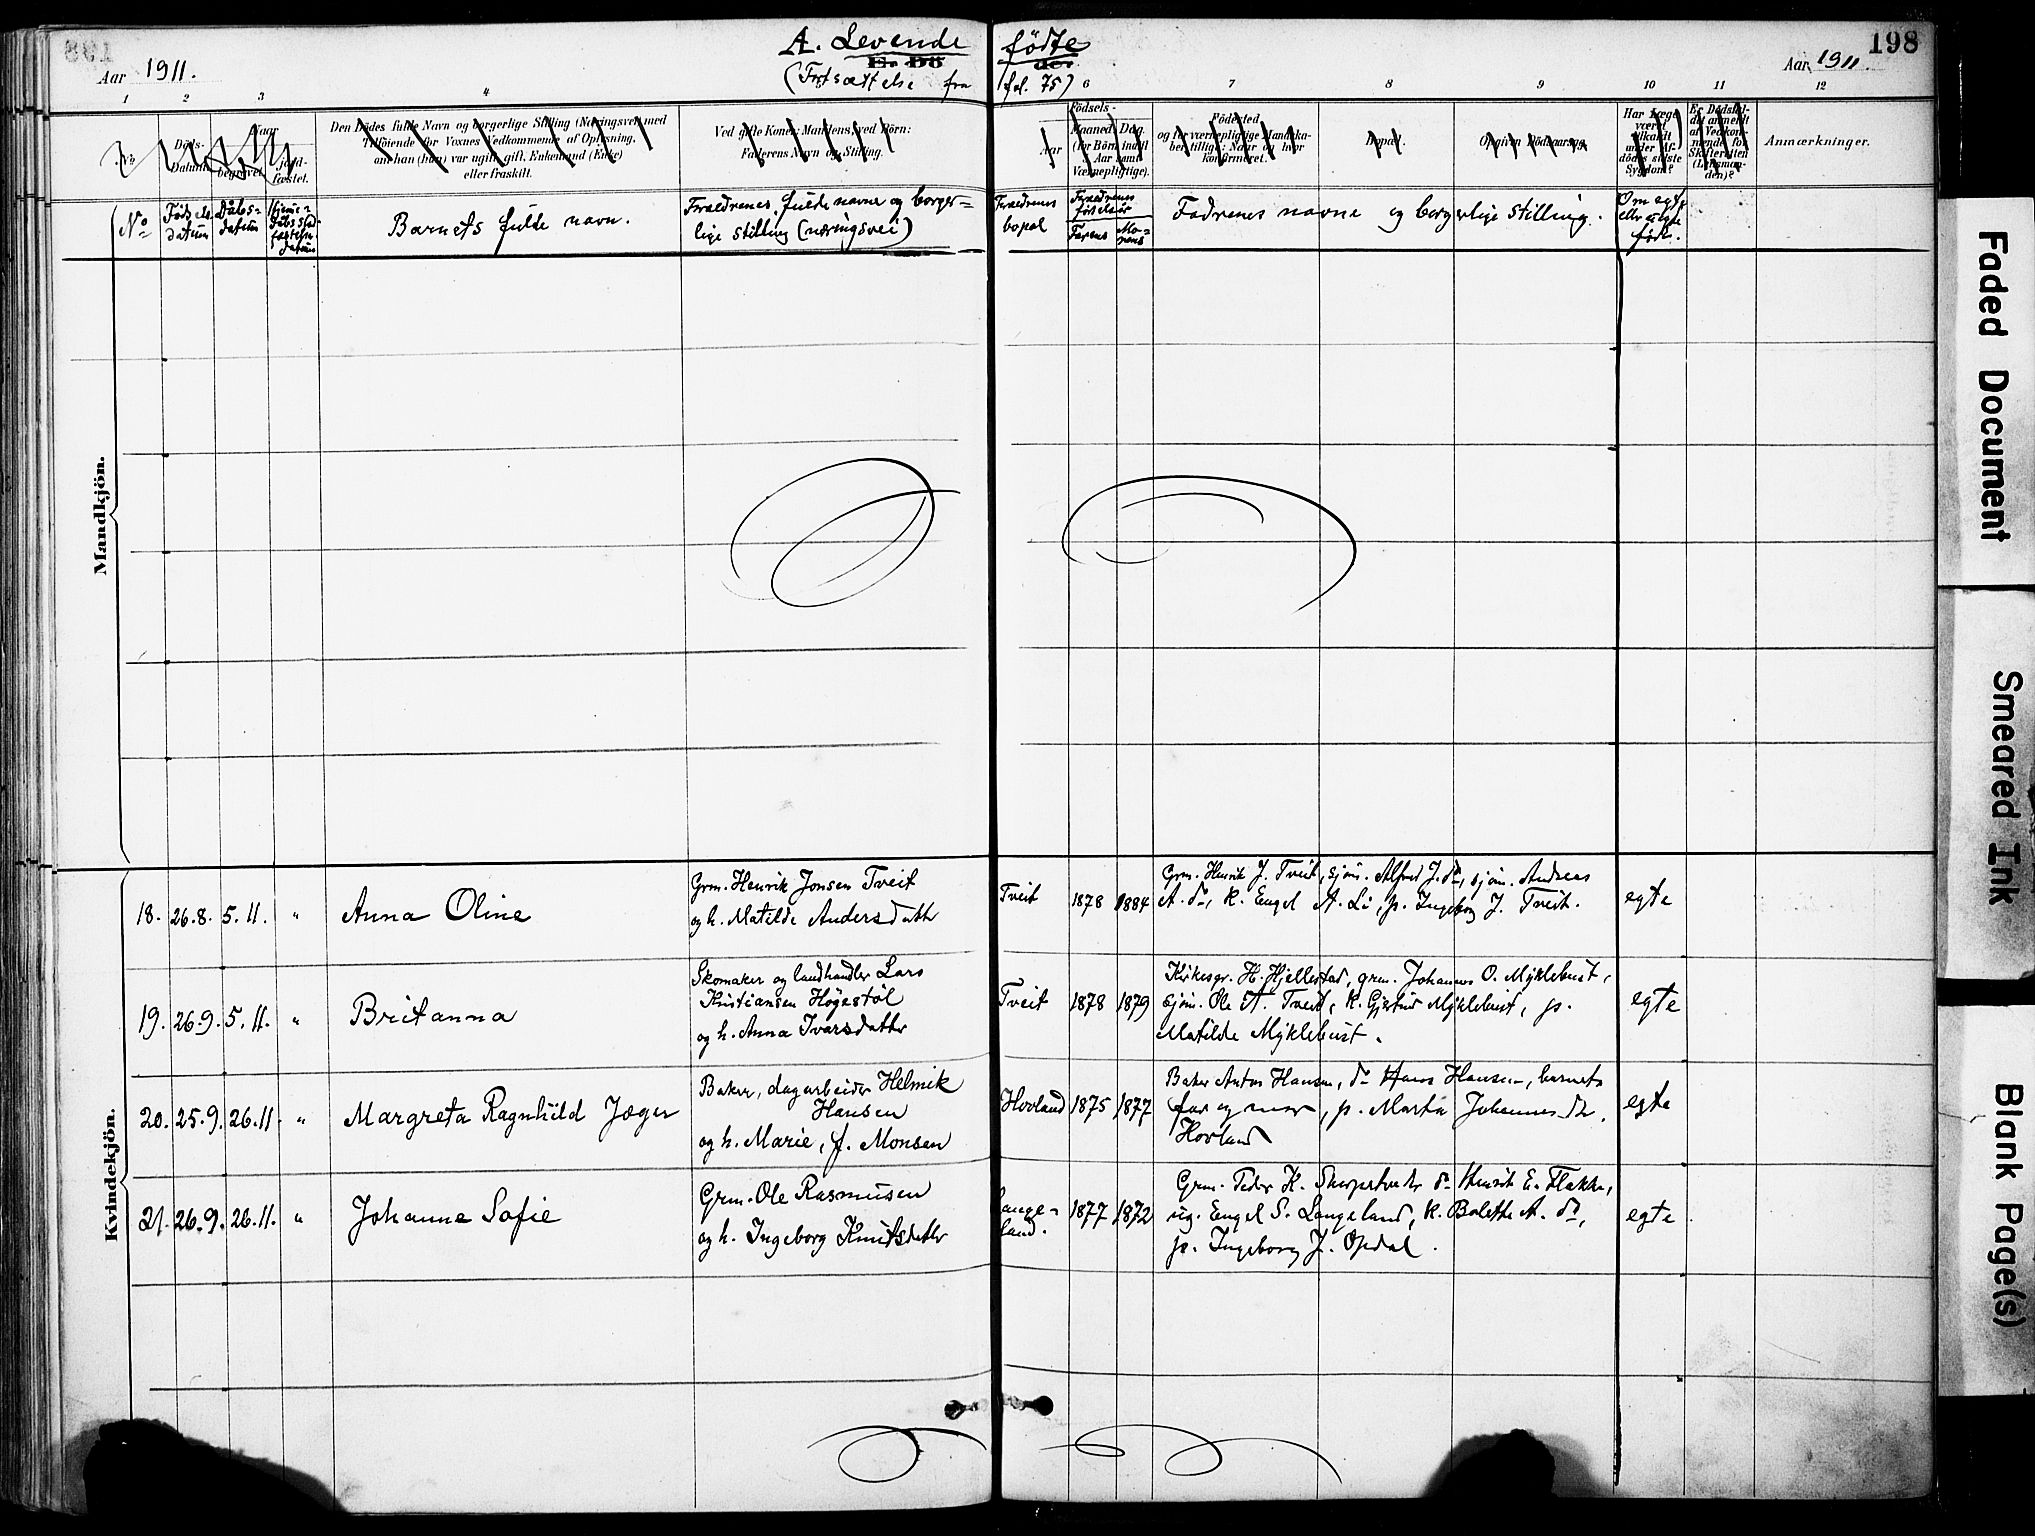 198
Aar 1911.
A. Levende
Er Dö
(Fortsættelse fra
fødte
de.
fol. 75)
Aar 1911
1 2 3 4 6 7 8 9 10 11 12
No
Döds-
Datum.
Naar
begravet.
jord-
fæstet.
Den Dödes fulde Navn og borgerlige Stilling (Næringsvei) med
Tilföiende for Voxnes Vedkommende af Oplysning,
om han (hun) var ugift, gift, Enkemand (Enke)
eller fraskilt.
Ved gifte Koner: Mandens, ved Börn:
Faderens Navn og Stilling.
Födsels-
Aar
Maaned, Dag.
(for Börn indtil
Aar samt
Værnepligtige).
Födested
og for værnepligtige Mandska-
ber tillige: Naar og hvor
konfirmeret.
Bopæl.
Opgiven Dödsaarsag.
Har Læge
været
tilkaldt
under Af-
dödes sidste
Sygdom?
Er Dödsfal-
det anmeldt
af Vedkom-
mende for
Skifteretten
(Lensman-
den)?
Anmærkninger.
No
Fødsels
datum
Dåbs-
datum
Hjemme-
dåbs stad-
festelse
datum
Barnets fulde navn.
Forældrenes fulde navne og borger-
lige stilling (næringsvei)
Forældrenes
bopæl
Forældrenes
fødselsår
Farens Mo-
rens
Fadrenes navne og borgerlige stilling.
Om egte
eller uegte
født.
Mandkjön.
Kvindekjön.
18. 26.8. 5.11. " Anna Oline
Grm. Henrik Jonsen Tveit
og h. Matilde Andersdatter
Tveit 1878 1884
Grm. Henrik J. Tveit, sjöm. Alfred J. do, sjöm. Andreas
A. do, k. Engel A. Li, p. Ingeborg J. Tveit.
egte
19. 26.9. 5.11. " Britanna
Skomaker og landhandler Lars
Kristiansen Høgestøl
og h. Anna Ivarsdatter
Tveit 1878 1879
Kirkesgr. H. Hjellestad, grm. Johannes O. Myklebust,
sjöm. Ole A. Tveit, k. Gjertrud Myklebust, p.
Matilde Myklebust.
egte
20. 25.9. 26.11 " Margreta Ragnhild Jæger
Baker, dagarbeider Helmik
Hansen
og h. Marie, f. Monsen
Hovland 1875 1877
Baker Anton Hansen, do Hans Hansen, barnets
far og mor, p. Marta Johannesdtr.
Hovland
egte
21. 26.9. 26.11. " Johanna Sofie
Grm. Ole Rasmusen
og h. Ingeborg Knutsdatter
Lange-
land. 1877 1872
Grm. Peder K. do Henrik E. Flakke,
ug. Engel S. Langeland, k. Bolette A. do,
p. Ingeborg J. Opdal.
egte
Faded Document
Smeared Ink
Blank Page(s)